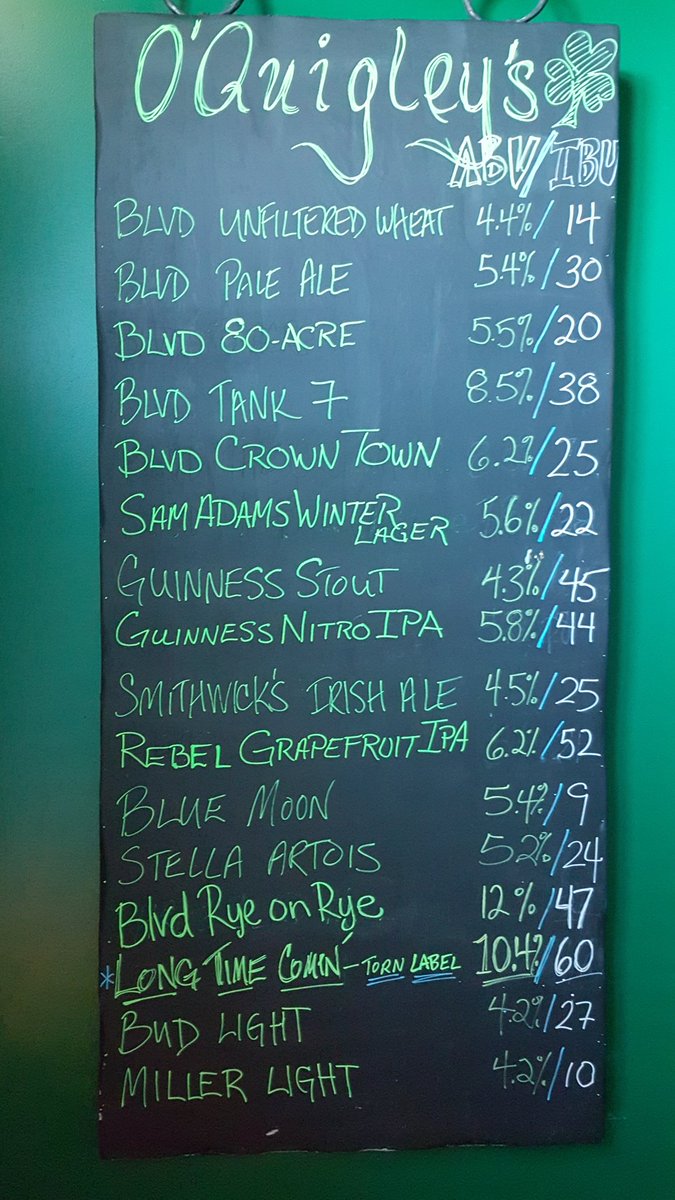 O'Quigley's
ABV/IBU
BLVD UNFILTERED WHEAT 4.4%/14
BLVD PALE ALE 5.4%/30
BLVD 80-ACRE 5.5%/20
BLVD TANK 7 8.5%/38
BLVD CROWN TOWN 6.2%/25
SAM ADAMS WINTER LAGER 5.6%/22
GUINNESS STOUT 4.3%/45
GUINNESS NITRO IPA 5.8%/44
SMITHWICK'S IRISH ALE 4.5%/25
REBEL GRAPEFRUIT IPA 6.2%/52
BLUE MOON 5.4%/9
STELLA ARTOIS 5.2%/24
Blvd Rye on Rye 12%/47
*LONG TIME COMIN' - TORN LABEL 10.4%/60
BUD LIGHT 4.2%/27
MILLER LIGHT 4.2%/10